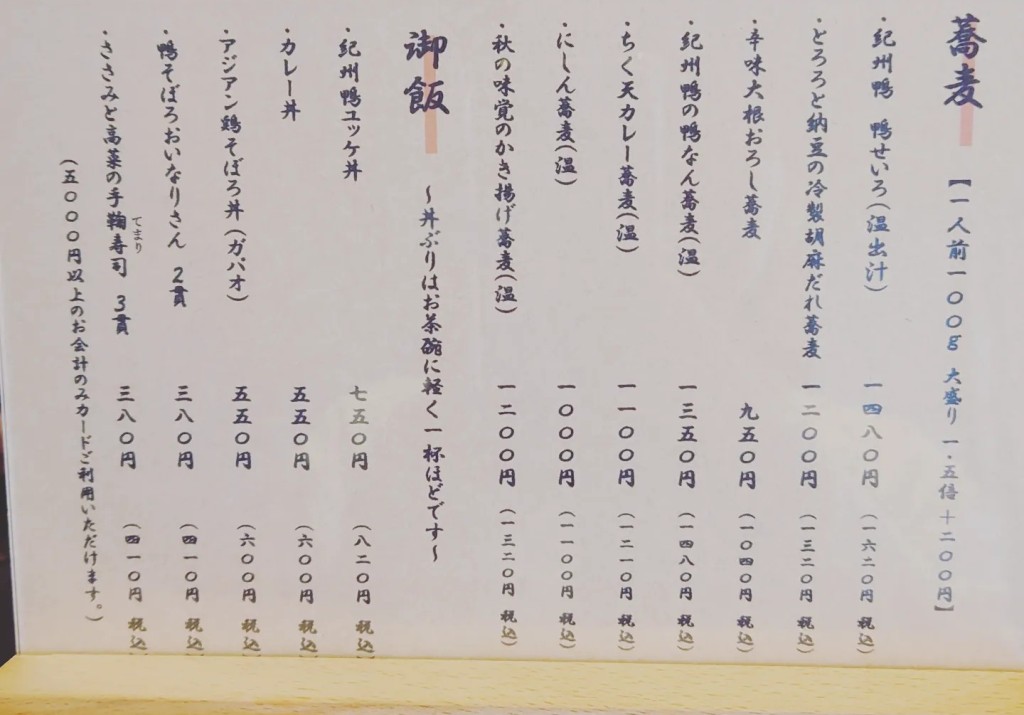 蕎麦 【一人前一〇〇g 大盛り 一・五倍 +二〇〇円】
・紀州鴨 鴨せいろ(温出汁) 一四八〇円 (一六二〇円 税込)
・とろろと納豆の冷製胡麻だれ蕎麦 一二〇〇円 (一三二〇円 税込)
・辛味大根おろし蕎麦 九五〇円 (一〇四〇円 税込)
・紀州鴨の鴨なん蕎麦(温) 一三五〇円 (一四八〇円 税込)
・ちく天カレー蕎麦(温) 一一〇〇円 (一二一〇円 税込)
・にしん蕎麦(温) 一〇〇〇円 (一一〇〇円 税込)
・秋の味覚のかき揚げ蕎麦(温) 一二〇〇円 (一三二〇円 税込)
御飯 〜丼ぶりはお茶碗に軽く一杯ほどです〜
・紀州鴨ユッケ丼 七五〇円 (八二〇円 税込
・カレー丼 五五〇円 (六〇〇円 税込
・アジアン鶏そぼろ丼(ガパオ) 五五〇円 (六〇〇円 税込
・鴨そぼろおいなりさん 2貫 三八〇円 (四一〇円 税込
・ささみと高菜の手鞠寿司 3貫 三八〇円 (四一〇円 税込
てまり
(五〇〇〇円以上のお会計のみカードご利用いただけます。)